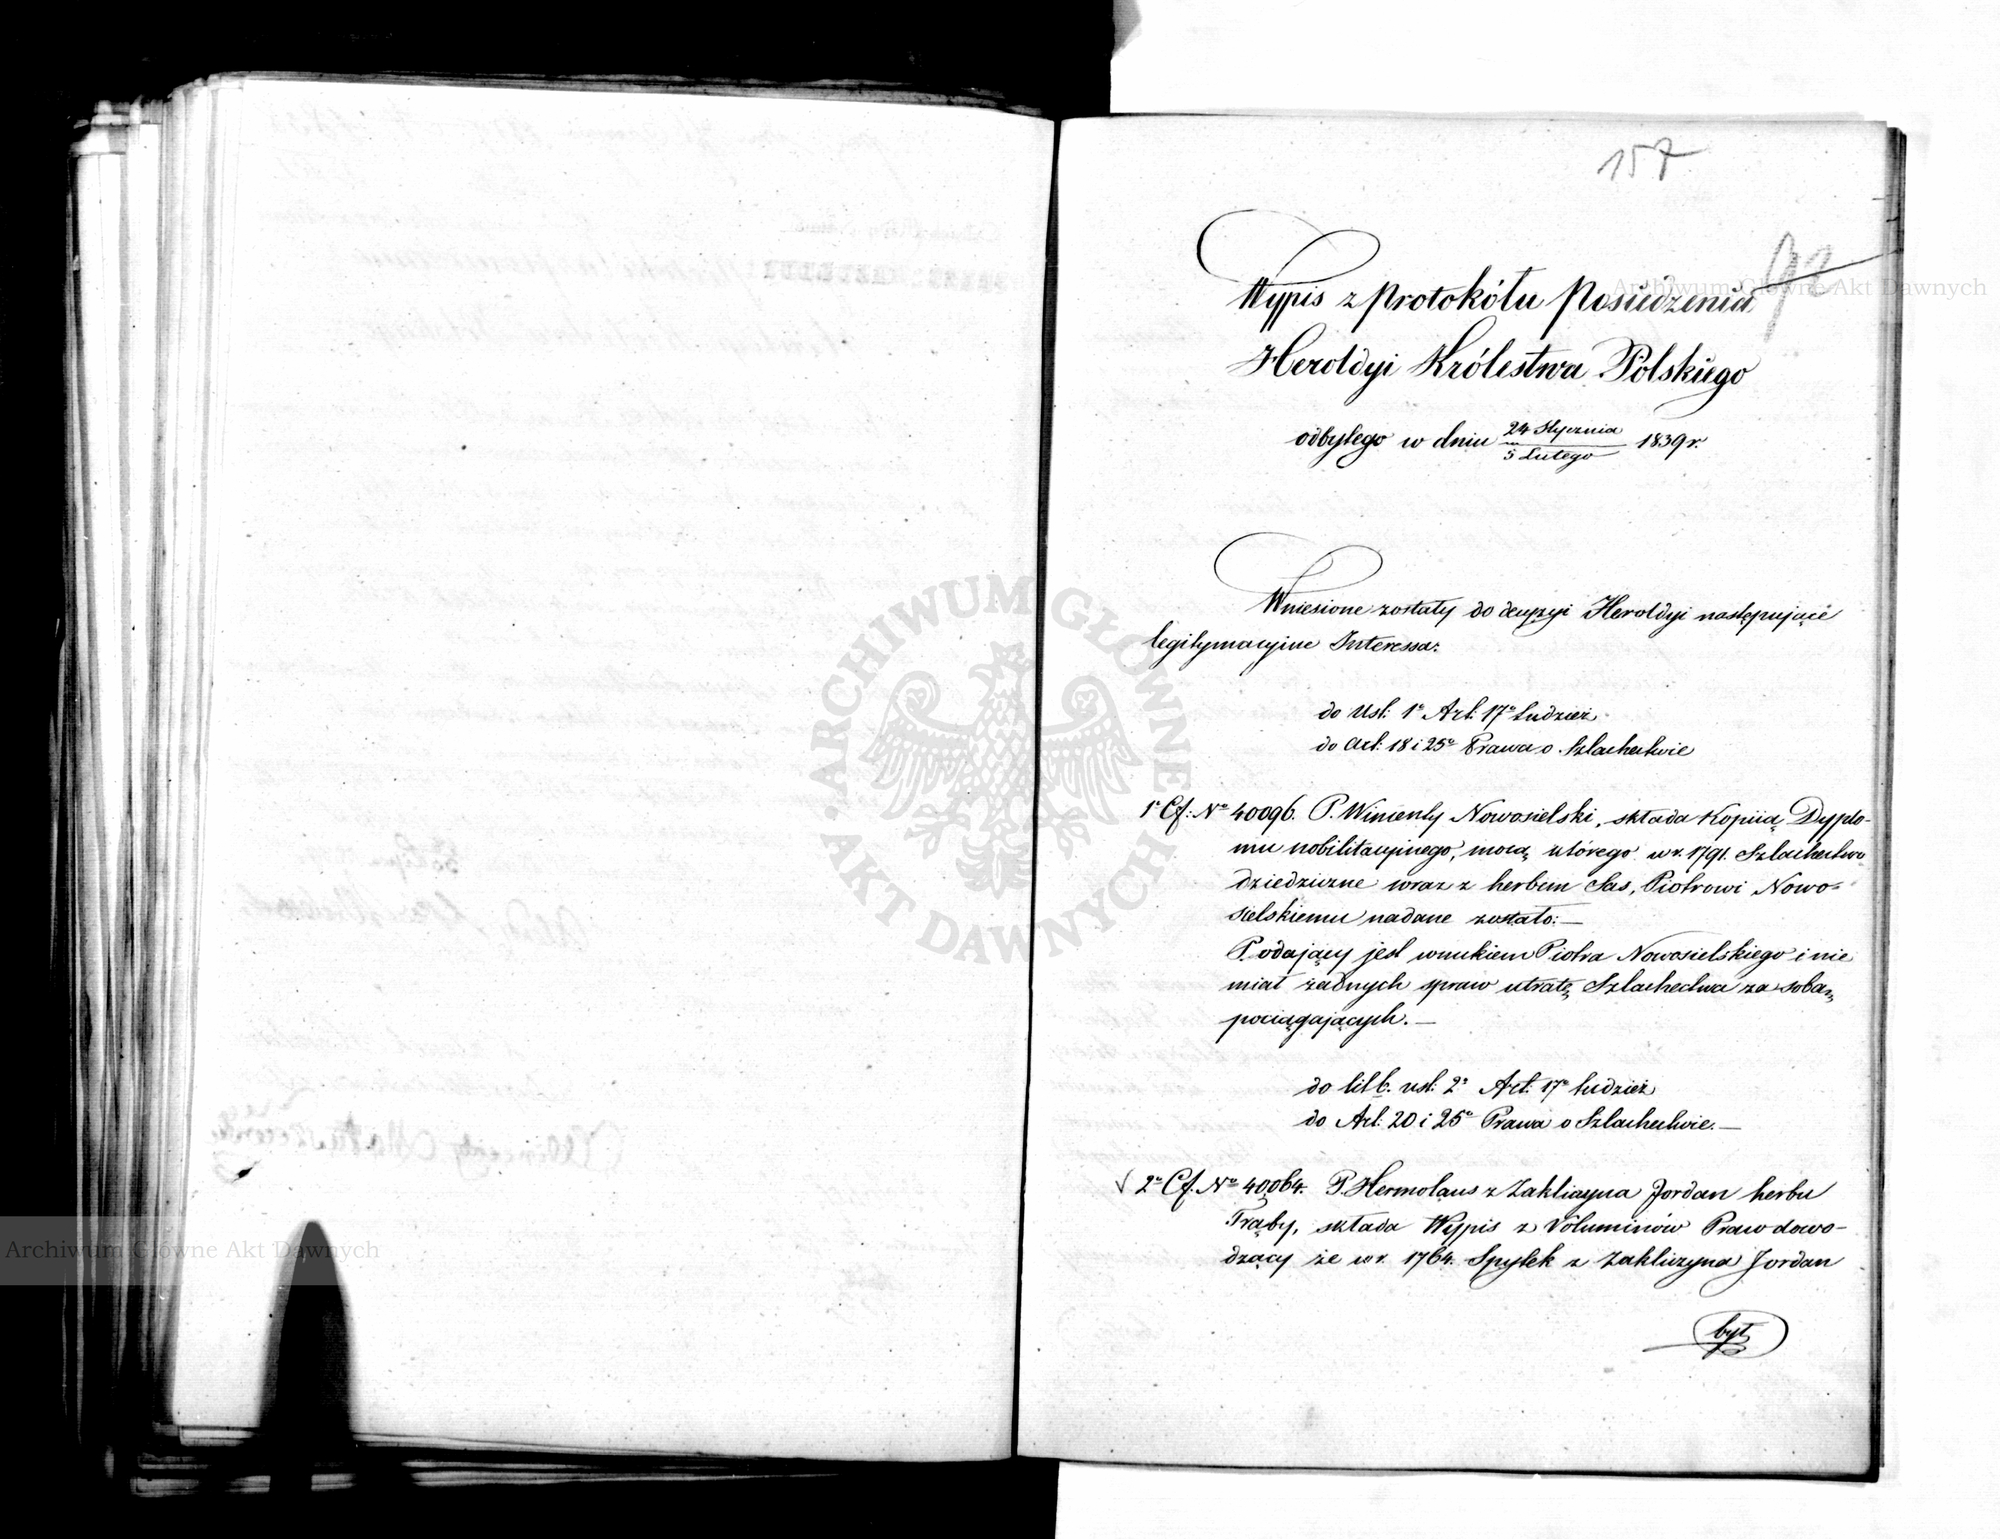 157
92
Wypis z protokółu Posiedzenia
Heroldyi Królestwa Polskiego
odbytego w dniu 24 Stycznia / 5 Lutego 1839 r.
Wniesione zostały do decyzyi Heroldyi następujące
legitymacyjne Interessa:
do Ust: 1º Art: 17º tudzież
do Art: 18 i 25º Prawa o Szlachectwie
1º Cf: Nº 40096. P. Wincenty Nowosielski, składa Kopiią Dyplo-
mu nobilitacyjnego, mocą którego w r. 1791. Szlachectwo
dziedziczne wraz z herbem Sas, Piotrowi Nowo-
sielskiemu nadane zostało: —
Podający jest wnukiem Piotra Nowosielskiego i nie
miał żadnych spraw utratę Szlachectwa za sobą
pociągających. —
do lit b. ust: 2º Art: 17º tudzież
do Art: 20 i 25º Prawa o Szlachectwie. —
√ 2º Cf. Nº 40064. P. Hermolaus z Zakliczyna Jordan herbu
Trąby, składa Wypis z Voluminów Praw dowo-
dzący że w r. 1764. Spytek z Zakliczyna Jordan
był
ARCHIWUM GŁÓWNE AKT DAWNYCH
Archiwum Główne Akt Dawnych
Archiwum Główne Akt Dawnych